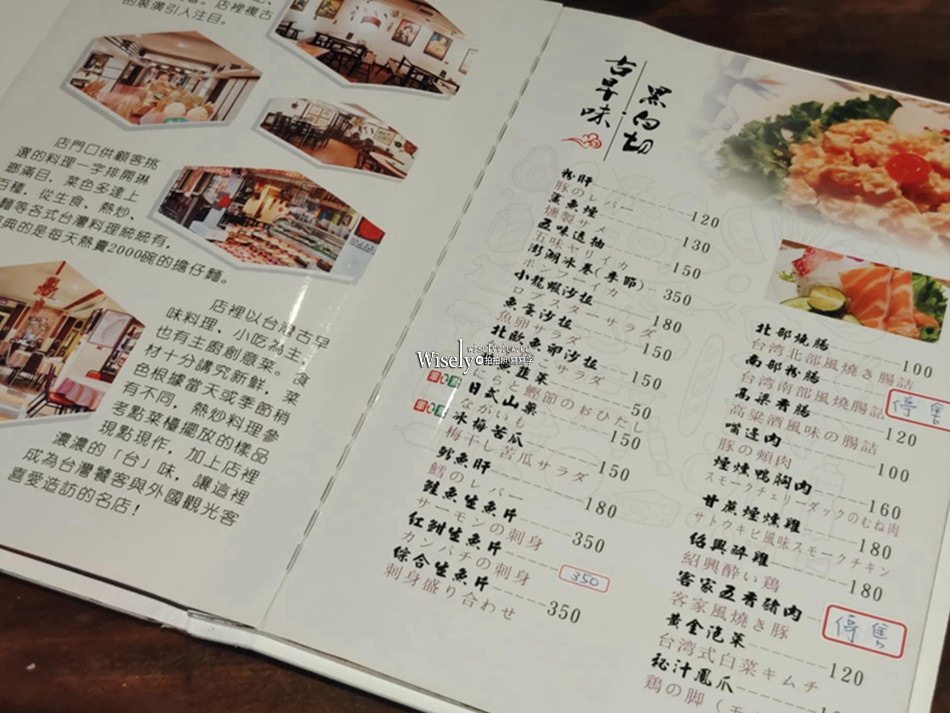 的裝潢引人注目。
店門口供顧客挑
選的料理一字排開琳
瑯滿目，菜色多達上
百種，從生食、熱炒、
麵等各式台灣料理統統有，
典的是每天熱賣2000碗的擔仔麵。
店裡以台灣古早
味料理、小吃為主，
也有主廚創意菜。食
材十分講究新鮮，菜
色根據當天或季節稍
有不同，熱炒料理參
考點菜檯擺放的樣品
現點現作，加上店裡
濃濃的「台」味，讓這裡
成為台灣饕客與外國觀光客
喜愛造訪的名店！
古早味·黑白切
粉肝 120
豚のレバー
鯊魚煙 130
燻製サメ
五味透抽 150
五味ヤリイカ
澎湖冰卷(季節) 350
小龍蝦沙拉 180
ロブスターサラダ
魚蛋沙拉 150
魚卵サラダ
北歐魚卵沙拉 150
韭菜 50
日式山藥 150
ながいも
冰梅苦瓜 150
梅干し苦瓜サラダ
鱈魚肝 180
鱈のレバー
鮭魚生魚片 350
サーモンの刺身
紅魽生魚片 350
カンパチの刺身
綜合生魚片 350
刺身盛り合わせ
北部燒腸 100
台湾北部風焼き腸詰
南部粉腸 停售
台湾南部風焼腸詰 120
高粱香腸
高粱酒風味の腸詰 100
嘴邊肉
豚の頬肉 160
煙燻鴨胸肉
スモークチェリーダックのむね肉
甘蔗煙燻雞 180
サトウキビ風味スモークチキン
紹興醉雞 180
紹興酔い鶏
客家五香豬肉 停售
客家風焼き豚
黃金泡菜 120
台湾式白菜キムチ
秘汁鳳爪
鶏の脚
Wisely